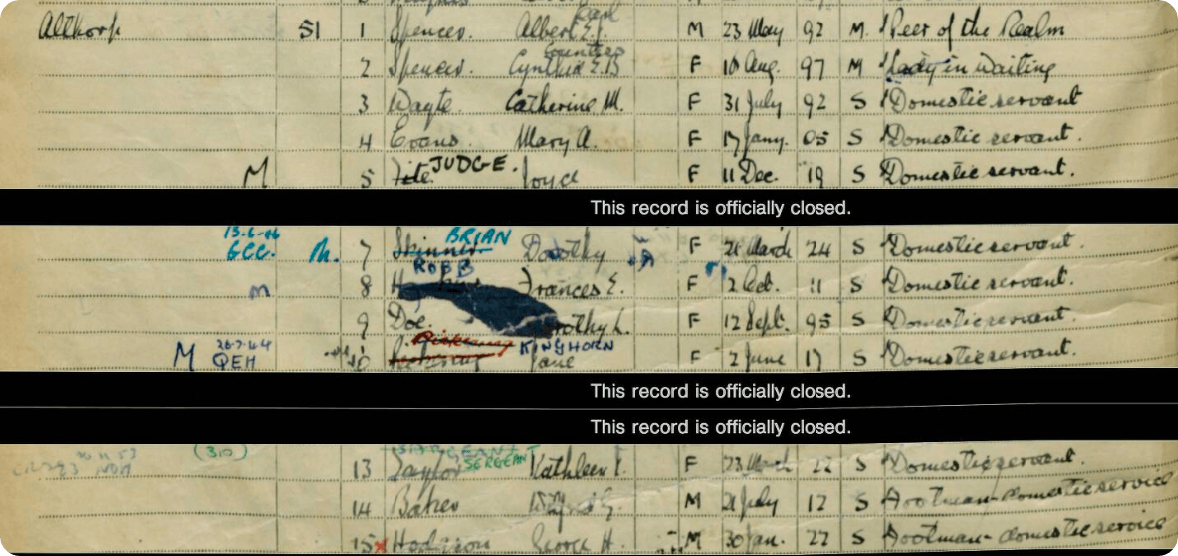 Earl
Althorp 51 1 Spencer Albert E.J. M 23 May 92 M Peer of the Realm
Countess
2 Spencer Cynthia E.B F 16 Aug. 97 M Lady in Waiting
3 Wayte Catherine M. F 31 July 92 S Domestic servant
4 Evans Mary A. F 17 Jany. 05 S Domestic servant.
M 5 JUDGE. Joyce F 11 Dec. 19 S Domestic servant.
This record is officially closed.
BRIAN
7 Skinner Dorothy F 21 March 24 S Domestic servant.
ROBB
M 8 Frances E. F 2 Oct. 11 S Domestic servant.
9 Doe F 12 Sept. 95 S Domestic servant.
Pickering KINGHORN
M 26-7-44 QEH 10 Jane F 2 June 17 S Domestic servant.
This record is officially closed.
This record is officially closed.
SERGEANT
13 Taylor Kathleen F 23 March 22 S Domestic servant.
14 M 21 July 12 S Footman - domestic service
15 George H. M 30 Jan. 22 S Footman - domestic service